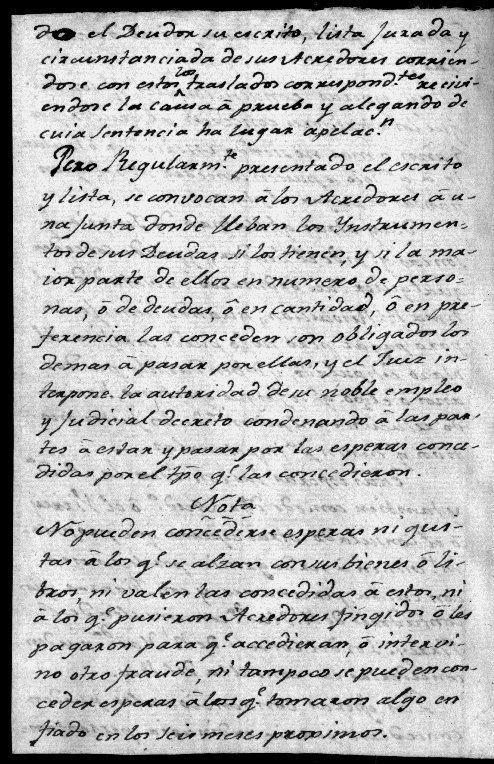 do el Deudor su escrito, lista Jurada y
circunstanciada de sus Acredores corrien-
dose con estos los traslados correspond.tes recivi-
endose la causa â prueba y alegando de
cuia Sentencia ha lugar apelac.n
Pero Regularm.te presentado el escrito
y lista, se convocan â los Acredores â u-
na Junta donde lleban los Ynstrumen-
tos de sus Deudas si los tienen, y si la ma-
ior parte de ellos en numero de perso-
nas, ô de deudas, ô en cantidad, ô en pre-
ferencia las conceden son obligados los
demas â pasar por ellas, y el Juez in-
terpone la autoridad de su noble empleo
y Judicial decreto condenando â las par-
tes â estar y pasar por las esperas conce-
didas por el tpõ q.e las concedieron.
Nota
No pueden concederse esperas ni qui-
tas â los q.e se alzan con sus bienes ô li-
bros, ni valen las concedidas â estos, ni
â los q.e pusieron Acredores fingidos ô les
pagaron para q.e accedieran, ô intervi-
no otro fraude, ni tampoco se pueden con-
ceder esperas â los q.e tomaron algo en
fiado en los seis meses proximos.